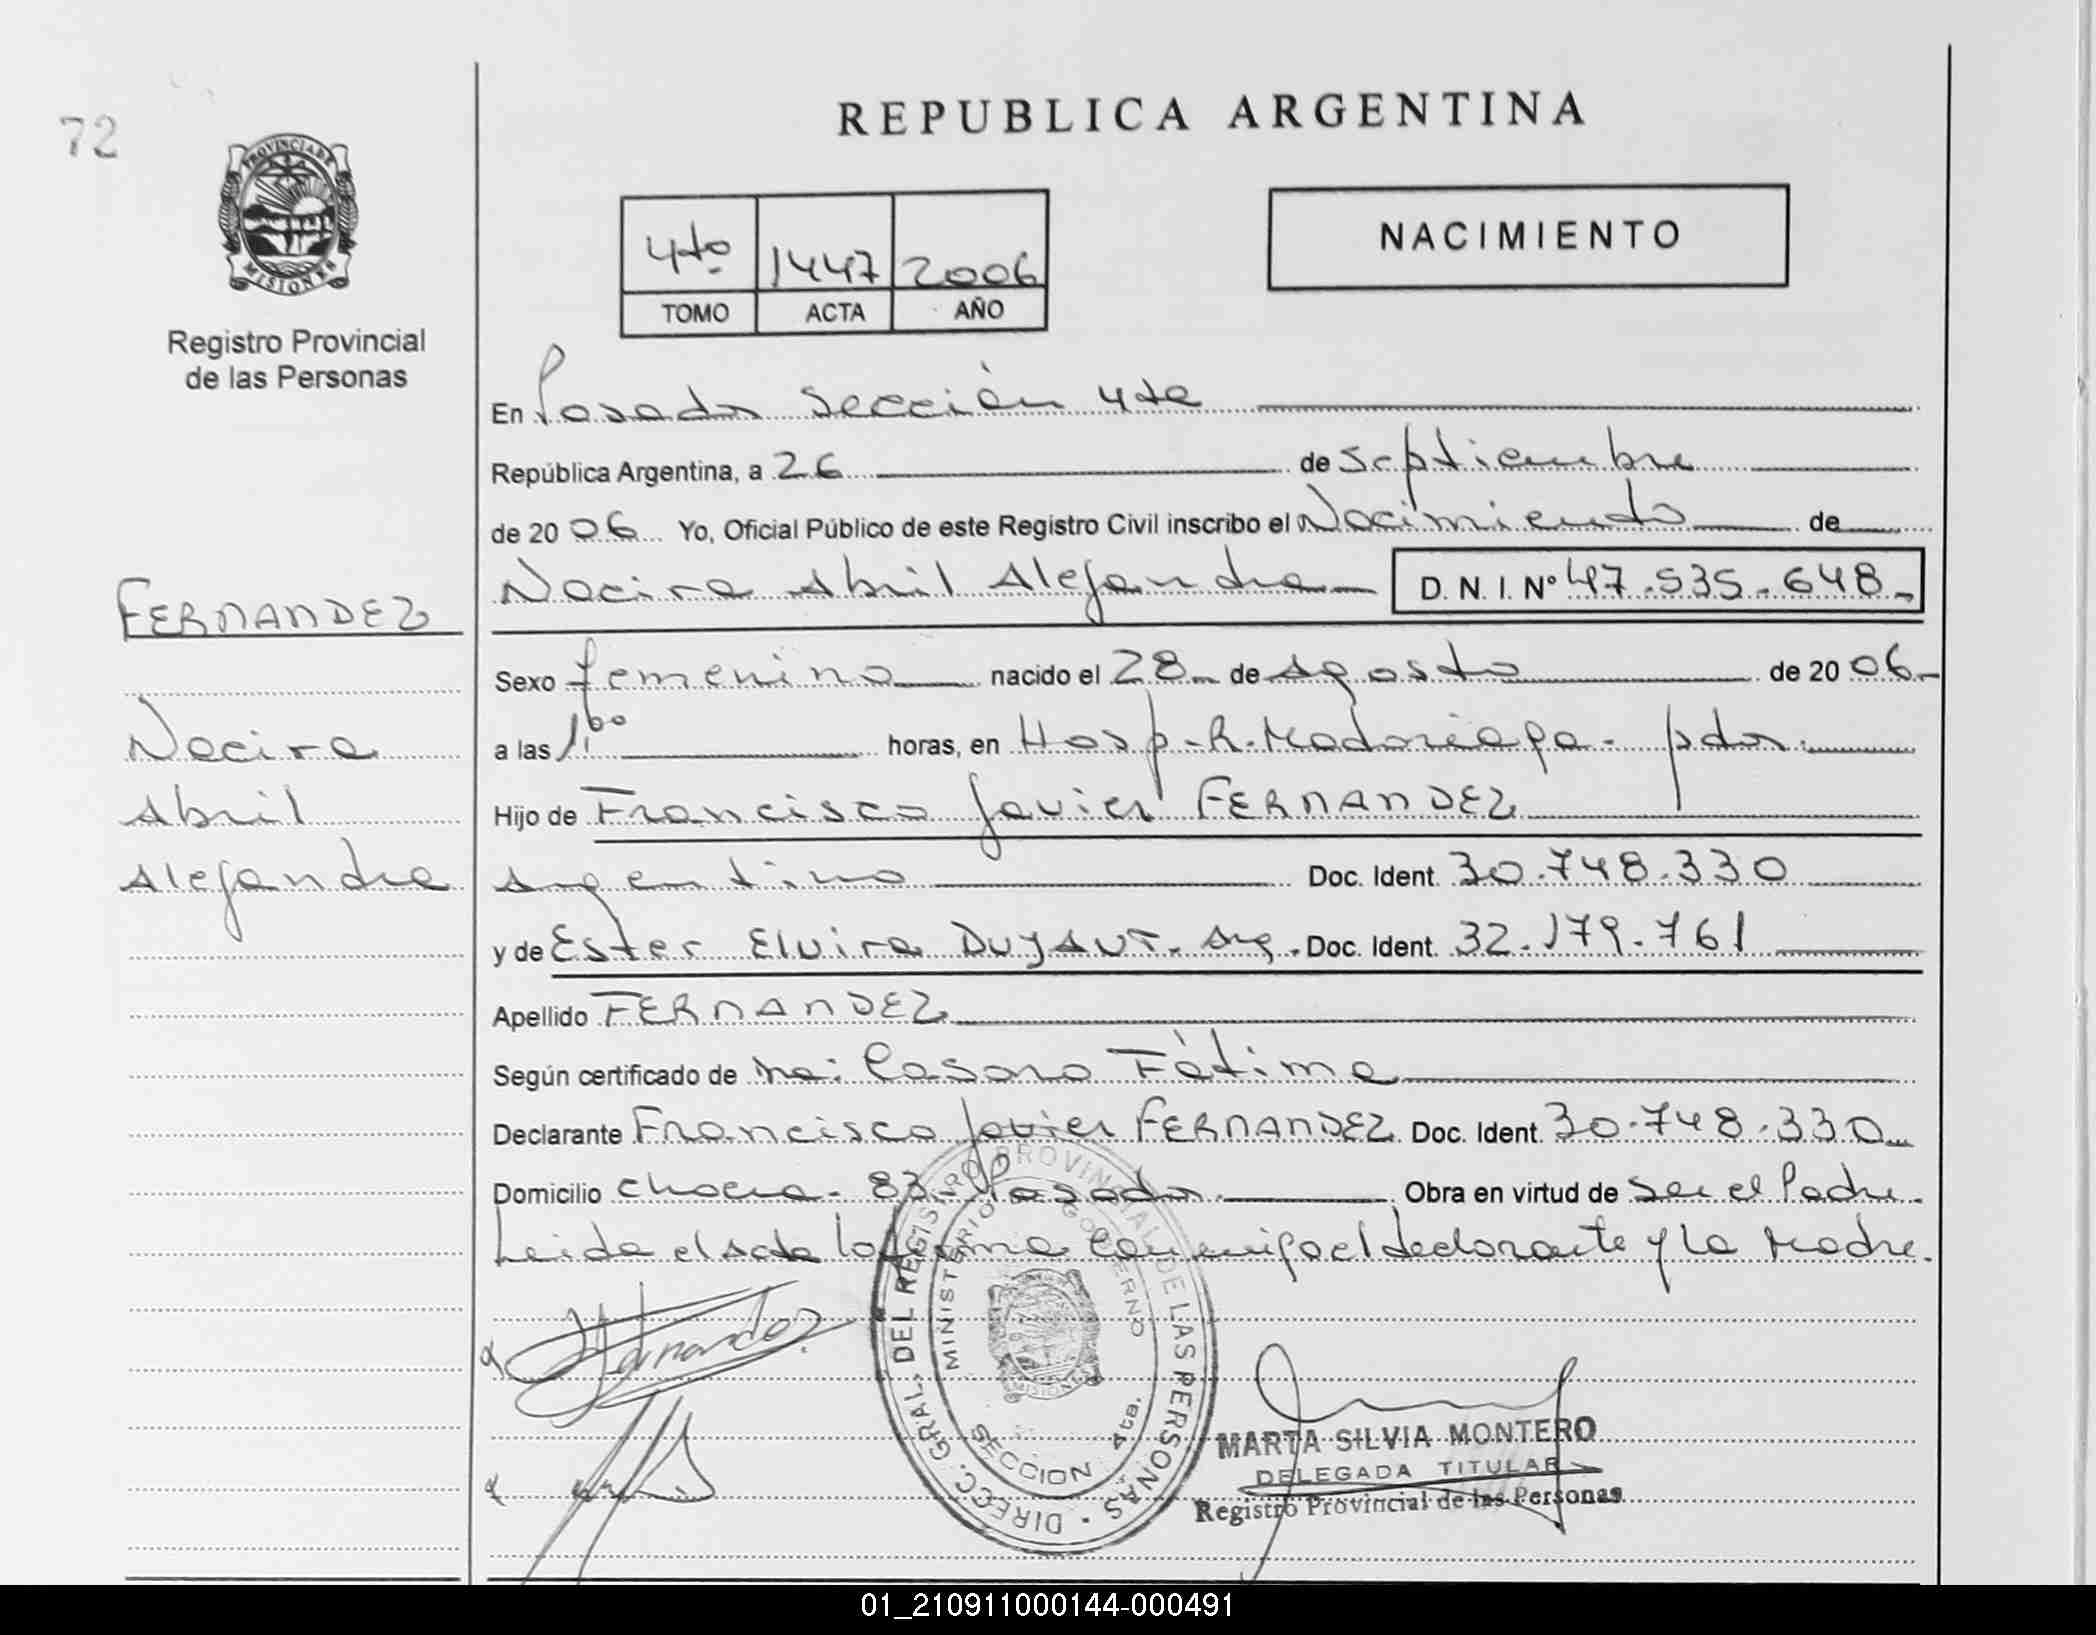 72
PROVINCIA DE
MISIONES
Registro Provincial
de las Personas
REPUBLICA ARGENTINA
4to 1447 2006
TOMO ACTA AÑO
NACIMIENTO
En Posadas Sección 4ta
República Argentina, a 26 de Septiembre
de 2006 Yo, Oficial Público de este Registro Civil inscribo el Nacimiento de
Nacira Abril Alejandra D. N. I. Nº 47.535.648-
FERNANDEZ
Sexo femenino nacido el 28 de Agosto de 2006-
a las horas, en Hosp. R. Madariaga - pdas.
Nacira
Abril
Alejandra
Hijo de Francisco Javier FERNANDEZ
Argentino Doc. Ident. 30.748.330
y de Ester Elvira DUJAUT. Arg. Doc. Ident. 32.179.761
Apellido FERNANDEZ
Según certificado de Fátima
Declarante Francisco Javier FERNANDEZ Doc. Ident. 30.748.330
Domicilio 83 - Posadas. Obra en virtud de Ser el Padre.
Leida el Acta la firma Conmigo el declarante y La Madre.
Fernandez
DIRECC. GRAL. DEL REGISTRO PROVINCIAL DE LAS PERSONAS
MINISTERIO GOBIERNO
MISIONES
SECCION 4ta.
MARTA SILVIA MONTERO
DELEGADA TITULAR
Registro Provincial de las Personas
01_210911000144-000491